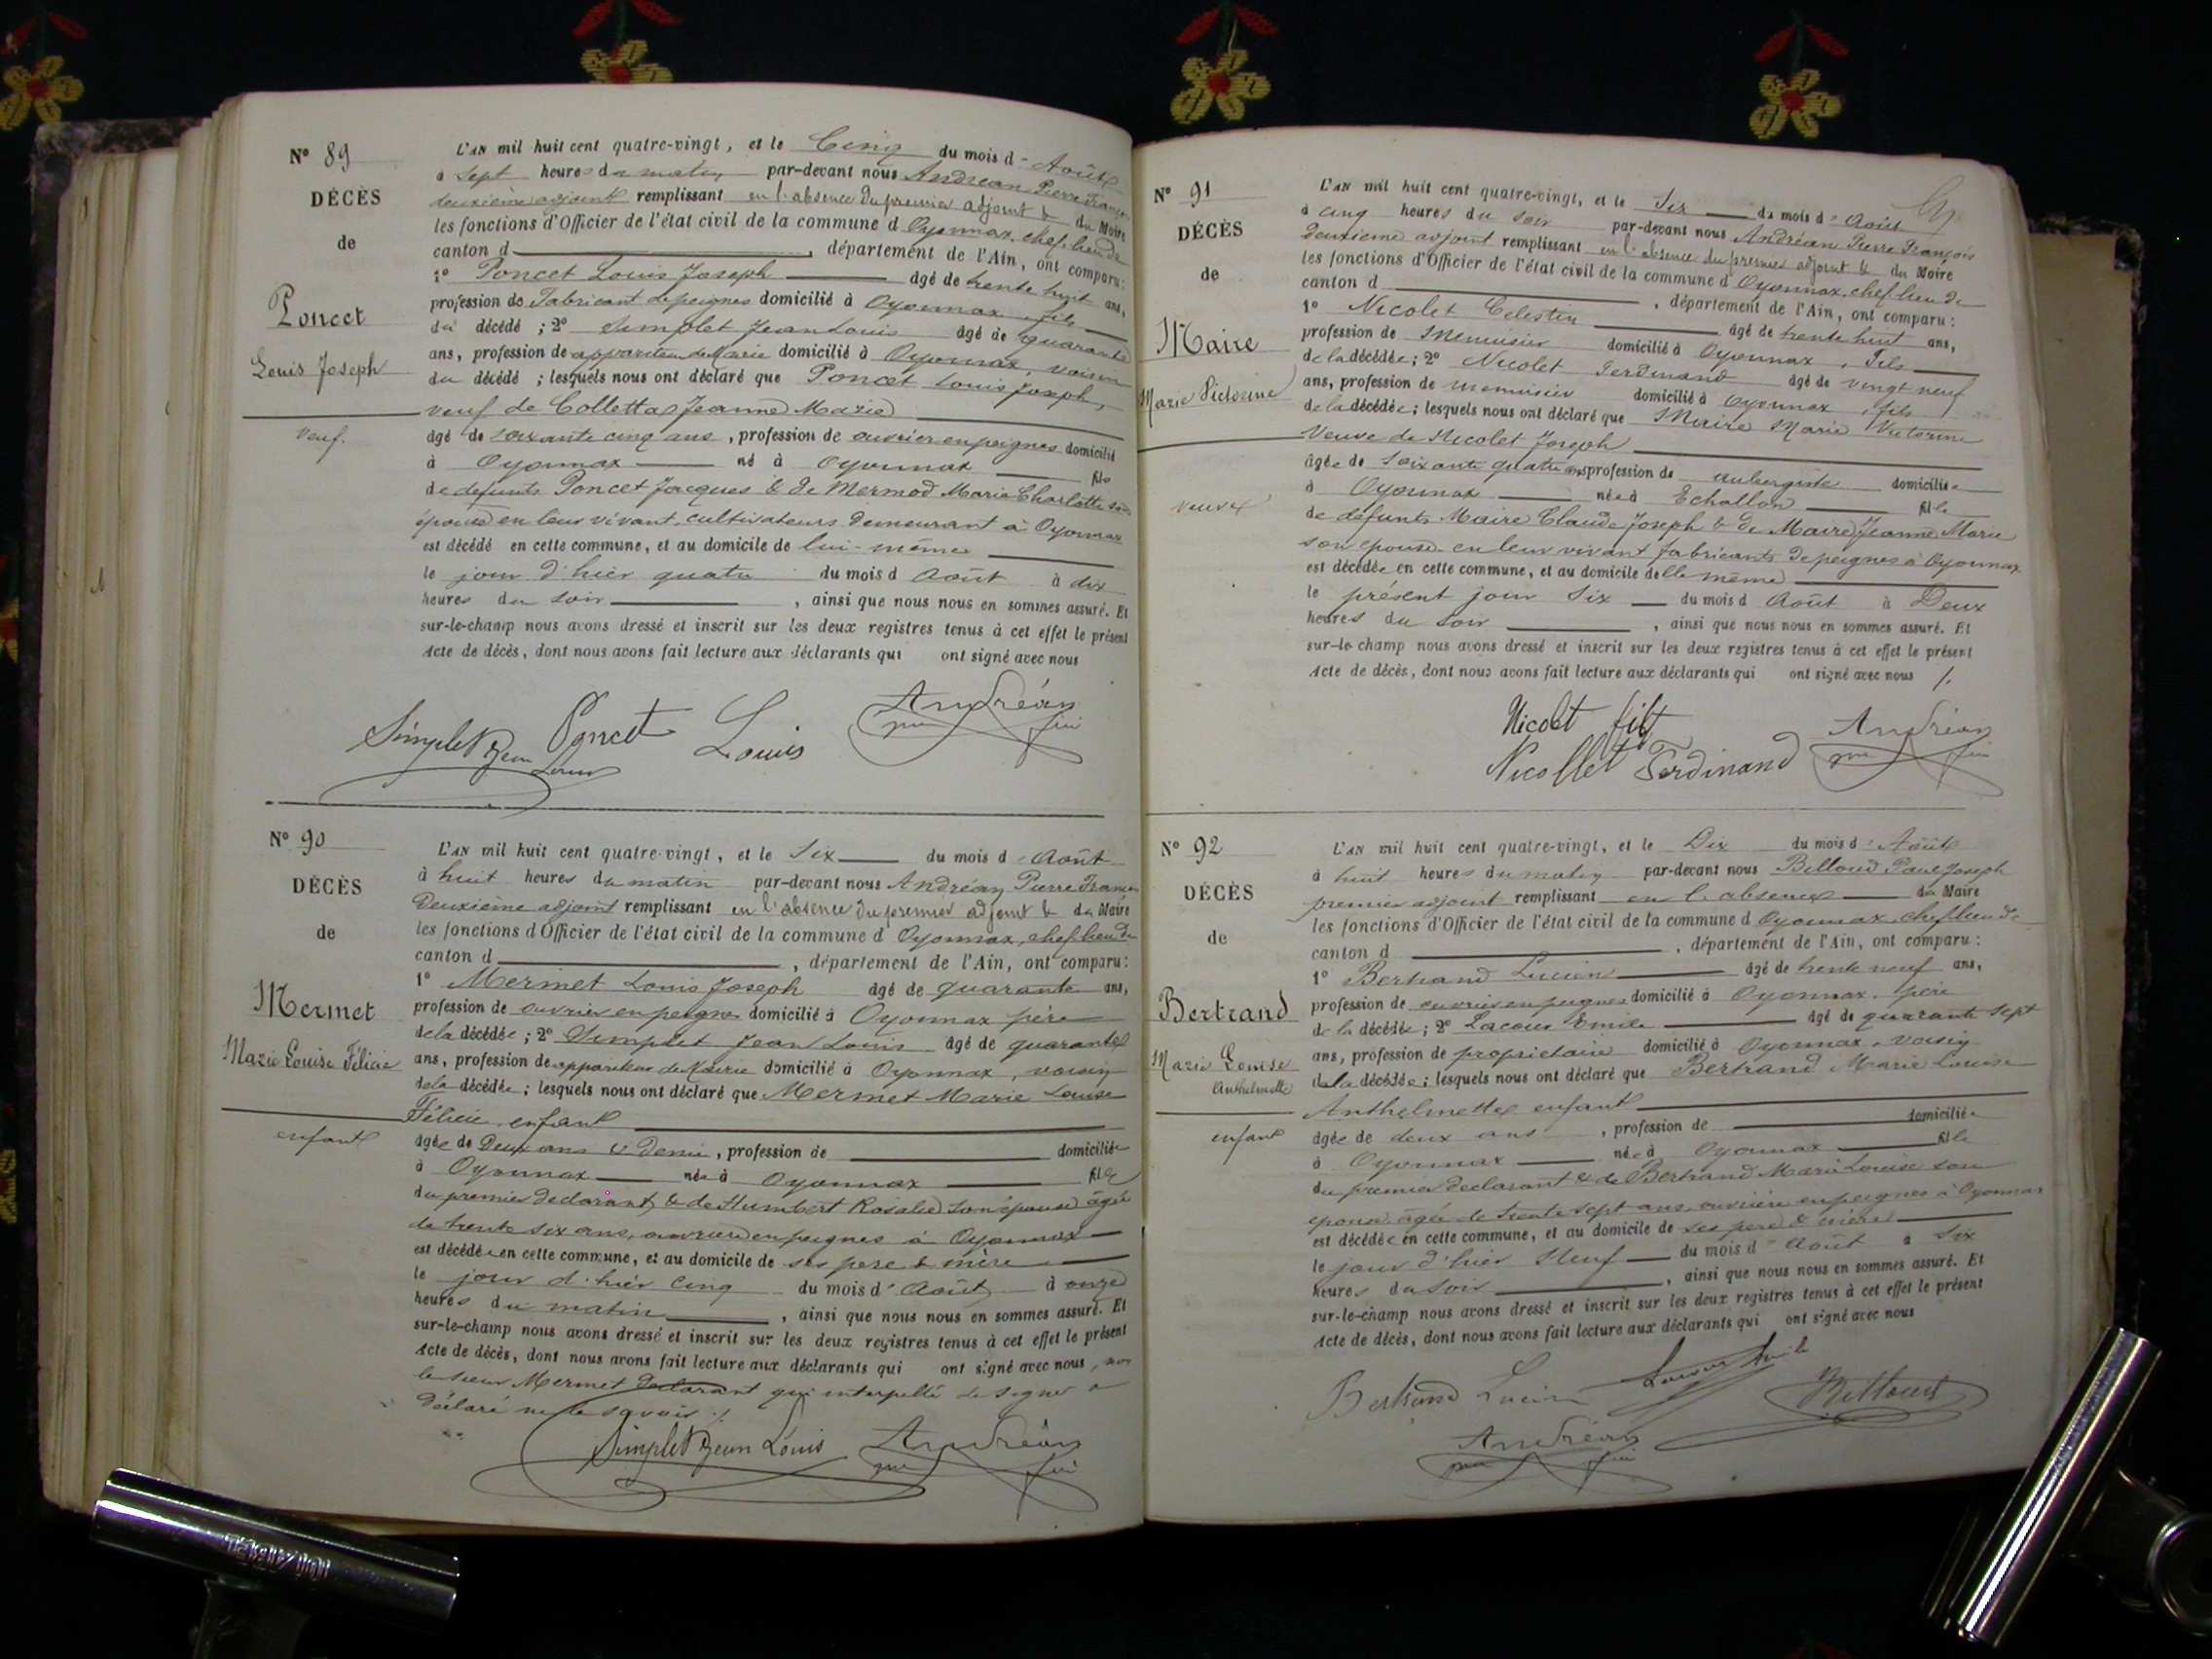 N° 89
DÉCÈS
de
Poncet
Louis Joseph
veuf.
L'AN mil huit cent quatre-vingt, et le Cinq du mois d'Août
à sept heures du matin par-devant nous Andréan Pierre François
deuxième adjoint remplissant en l'absence du premier adjoint & du Maire
les fonctions d'Officier de l'état civil de la commune d Oyonnax, chef lieu de
canton d , département de l'Ain, ont comparu:
1° Poncet Louis Joseph âgé de trente huit ans,
profession de Fabricant de peignes domicilié à Oyonnax fils
du décédé ; 2° Simplet Jean Louis âgé de quarante
ans, profession de appariteur de Mairie domicilié à Oyonnax, voisin
du décédé ; lesquels nous ont déclaré que Poncet Louis Joseph,
veuf de Colletta Jeanne Marie
âgé de soixante cinq ans , profession de ouvrier en peignes domicilié
à Oyonnax né à Oyonnax fils
de defunts Poncet Jacques & de Mermod Marie Charlotte son
épouse en leur vivant, cultivateurs demeurant à Oyonnax
est décédé en cette commune, et au domicile de lui-même
le jour d'hier quatre du mois d Août à dix
heures du soir , ainsi que nous nous en sommes assuré. Et
sur-le-champ nous avons dressé et inscrit sur les deux registres tenus à cet effet le présent
Acte de décès, dont nous avons fait lecture aux déclarants qui ont signé avec nous
Simplet Jean Louis Poncet Louis Andréan
N° 90
DÉCÈS
de
Mermet
Marie Louise Félicie
enfant
L'AN mil huit cent quatre-vingt, et le Six du mois d'Août
à huit heures du matin par-devant nous Andréan Pierre François
Deuxième adjoint remplissant en l'absence du premier adjoint & du Maire
les fonctions d'Officier de l'état civil de la commune d Oyonnax, chef lieu de
canton d , département de l'Ain, ont comparu:
1° Mermet Louis Joseph âgé de quarante ans,
profession de ouvrier en peignes domicilié à Oyonnax père
de la décédée ; 2° Simplet Jean Louis âgé de quarante
ans, profession de appariteur de Mairie domicilié à Oyonnax, voisin
de la décédée ; lesquels nous ont déclaré que Mermet Marie Louise
Félicie, enfant
âgée de Deux ans & Demi , profession de domiciliée
à Oyonnax née à Oyonnax fille
du premier declarant & de Humbert Rosalie son épouse âgée
de trente six ans, ouvrière en peignes à Oyonnax
est décédée en cette commune, et au domicile de ses pere & mère
le jour d'hier cinq du mois d'Août à onze
heures du matin , ainsi que nous nous en sommes assuré. Et
sur-le-champ nous avons dressé et inscrit sur les deux registres tenus à cet effet le présent
Acte de décès, dont nous avons fait lecture aux déclarants qui ont signé avec nous, non
le sieur Mermet declarant qui interpellé de signer a
déclaré ne le savoir ./.
Simplet Jean Louis Andréan
N° 91
DÉCÈS
de
Maire
Marie Victorine
veuve
L'AN mil huit cent quatre-vingt, et le Six du mois d'Août
à cinq heures du soir par-devant nous Andréan Pierre François
Deuxieme adjoint remplissant en l'absence du premier adjoint & du Maire
les fonctions d'Officier de l'état civil de la commune d Oyonnax, chef lieu de
canton d , département de l'Ain, ont comparu:
1° Nicolet Celestin âgé de trente huit ans,
profession de Menuisier domicilié à Oyonnax, Fils
de la décédée ; 2° Nicolet Ferdinand âgé de vingt neuf
ans, profession de menuisier domicilié à Oyonnax, fils
de la décédée ; lesquels nous ont déclaré que Maire Marie Victorine
Veuve de Nicolet Joseph
âgée de soixante quatre ans profession de aubergiste domiciliée
à Oyonnax née à Echallon fille
de défunts Maire Claude Joseph & de Maire Jeanne Marie
son epouse en leur vivant fabricants de peignes à Oyonnax
est décédée en cette commune, et au domicile d'elle même
le présent jour Six du mois d Août à Deux
heures du soir , ainsi que nous nous en sommes assuré. Et
sur-le-champ nous avons dressé et inscrit sur les deux registres tenus à cet effet le présent
Acte de décès, dont nous avons fait lecture aux déclarants qui ont signé avec nous /.
Nicolet fils Andréan
Nicollet Ferdinand
N° 92
DÉCÈS
de
Bertrand
Marie Louise
Anthelmette
enfant
L'AN mil huit cent quatre-vingt, et le Dix du mois d'Août
à huit heures du matin par-devant nous Billoud Paul Joseph
premier adjoint remplissant en l'absence du Maire
les fonctions d'Officier de l'état civil de la commune d Oyonnax, chef lieu de
canton d , département de l'Ain, ont comparu:
1° Bertrand Lucien âgé de trente neuf ans,
profession de ouvrier en peignes domicilié à Oyonnax, père
de la décédée ; 2° Lacour Emile âgé de quarante sept
ans, profession de propriétaire domicilié à Oyonnax, voisin
de la décédée ; lesquels nous ont déclaré que Bertrand Marie Louise
Anthelmette enfant
âgée de deux ans , profession de domiciliée
à Oyonnax née à Oyonnax fille
du premier declarant & de Bertrand Marie Louise son
epouse âgée de trente sept ans, ouvrière en peignes à Oyonnax
est décédée en cette commune, et au domicile de ses pere & mère
le jour d'hier Neuf du mois d'Août à Six
heures du soir , ainsi que nous nous en sommes assuré. Et
sur-le-champ nous avons dressé et inscrit sur les deux registres tenus à cet effet le présent
Acte de décès, dont nous avons fait lecture aux déclarants qui ont signé avec nous
Bertrand Lucien Lacour Emile Billoud
Andréan